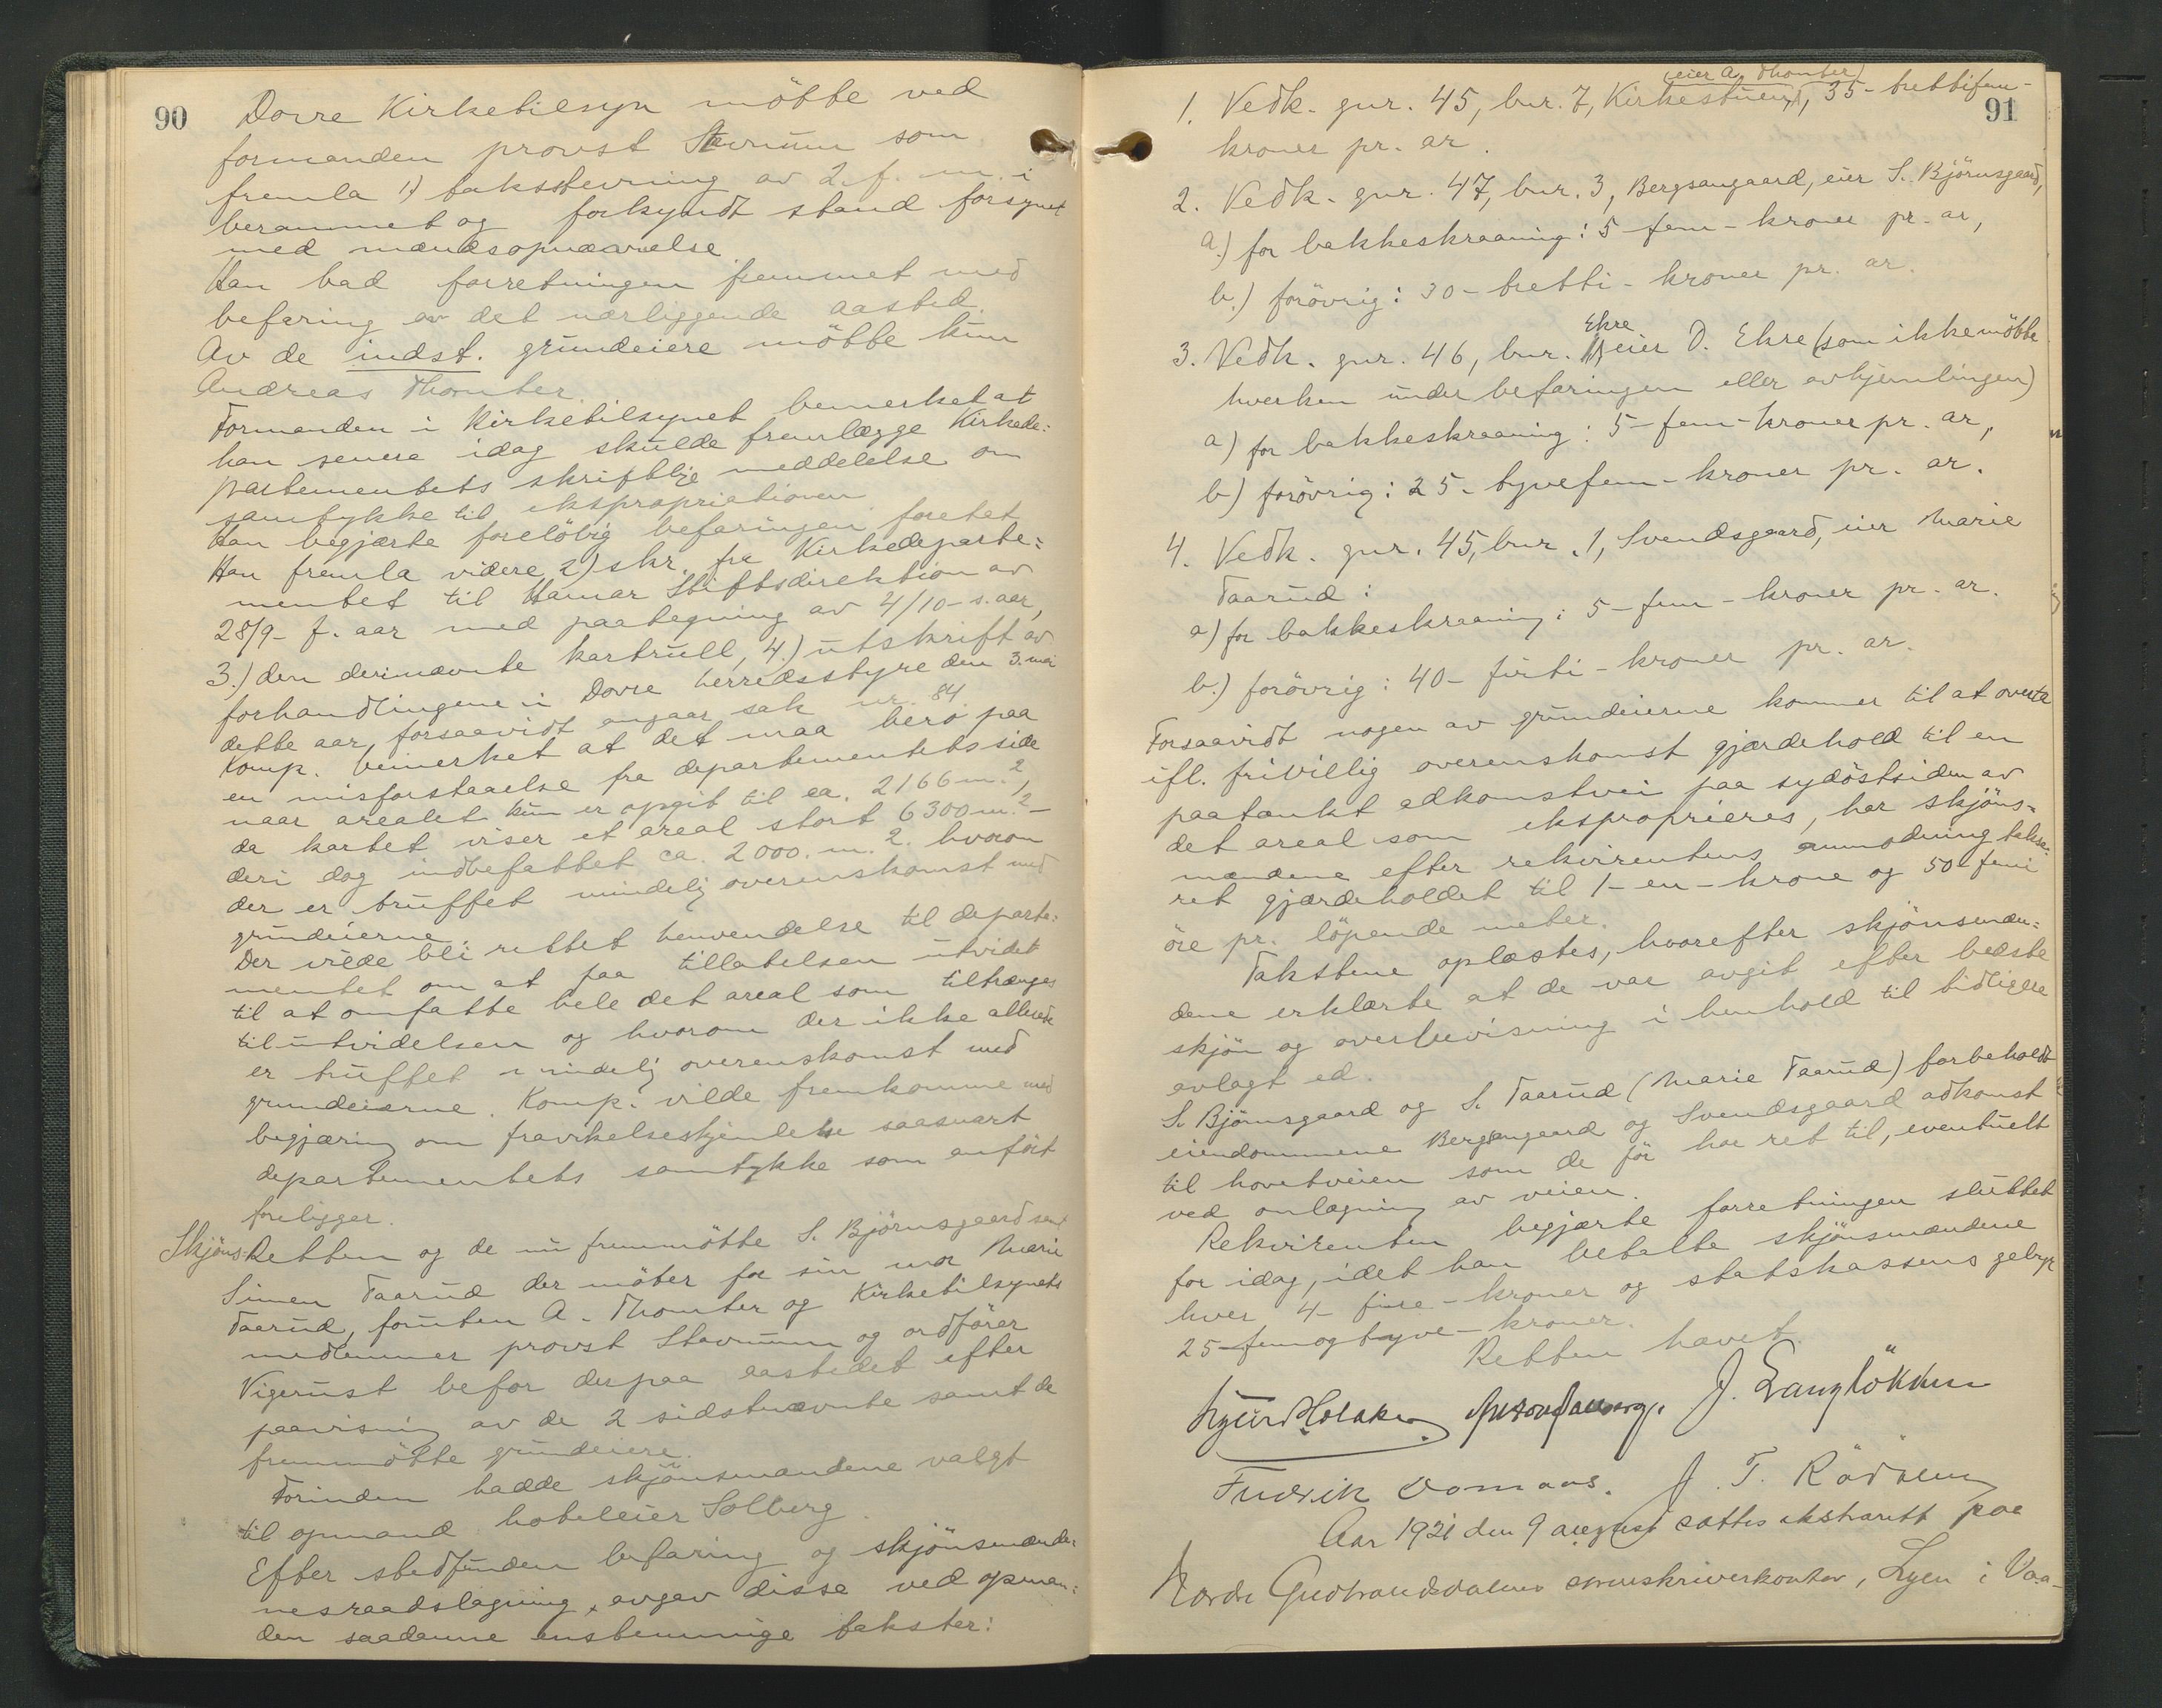 90
Dovre Kirketilsyn møtte ved
formanden provst Stavrum som
fremla 1) takststevning av 2. f. m. i
berammet og forkyndt stand forsynet
med mændsopnævnelse
Han bad forretningen fremmet med
befaring av det nærliggende aasted.
Av de indst. grundeiere møtte kun
Andreas Thomter.
Formanden i Kirketilsynet bemerket at
han senere idag skulde fremlægge Kirkede-
partementets skriftlige meddelelse om
samtykke til ekspropriationen
Han begjærte foreløbig befaringen foretat
Han fremla videre 2) skr. fra Kirkedeparte-
mentet til Hamar Stiftsdirektion av
28/9- f. aar med paategning av 4/10- s. aar,
3.) den derinævnte kartrull, 4.) utskrift av
forhandlingene i Dovre herredsstyre den 3. mai
dette aar, forsaavidt angaar sak nr. 84.
Komp. bemerket at det maa bero paa
en misforstaaelse fra departementets side
naar arealet kun er opgit til ca. 2166 m.²,
da kartet viser et areal stort 6300 m.² -
deri dog indbefattet ca. 2000. m. 2. hvorom
der er truffet mindelig overenskomst med
grundeierne.
Der vilde bli rettet henvendelse til departe-
mentet om at faa tillatelsen utvidet
til at omfatte hele det areal som tiltrænges
til utvidelsen og hvorom der ikke allerede
er truffet mindelig overenskomst med
grundeierne. Komp. vilde fremkomme med
begjæring om fravikelseskjendelse saasnart
departementets samtykke som anført
foreligger.
Skjøns-Retten og de nu fremmøtte S. Bjørnsgaard samt
Simen Taarud der møter for sin mor Marie
Taarud, foruten A. Thomter og Kirketilsynets
medlemmer provst Stavrum og ordfører
Vigerust befor derpaa aastedet efter
paavisning av de 2 sidstnævnte samt de
fremmøtte grundeiere.
Forinden hadde skjønsmændene valgt
til opmand hoteleier Solberg.
Efter stedfunden befaring og skjønsmænde-
nes raadslagning, avgav disse ved opman-
den saadanne enstemmige takster:
91
(eier A. Thomter)
1. Vedk. gnr. 45, bnr. 7, Kirkestuen, 35- trettifem-
kroner pr. ar.
2. Vedk. gnr. 47, bnr. 3, Bergsangaard, eier S. Bjørnsgaard,
a.) for bakkeskraaning: 5 - fem - kroner pr. ar,
b.) forøvrig: 30 - tretti - kroner pr. ar.
Ekre
3. Vedk. gnr. 46, bnr. eier O. Ekre (som ikke møtte
hverken under befaringen eller avhjemlingen)
a) for bakkeskraaning: 5 - fem - kroner pr. ar,
b) forøvrig: 25 - tyvefem - kroner pr. ar.
4. Vedk. gnr. 45, bnr. 1, Svendsgaard, eier Marie
Taarud:
a) for bakkeskraaning: 5 - fem - kroner pr. ar.
b.) forøvrig: 40 - fürti - kroner pr. ar.
Forsaavidt nogen av grundeierne kommer til at overta
ifl. frivillig overenskomst gjærdehold til en
paatænkt adkomstvei paa sydøstsiden av
det areal som eksproprieres, har skjøns-
mændene efter rekvirentens anmodning takse-
ret gjærdeholdet til 1 - en - krone og 50 - femti
øre pr. løpende meter.
Takstene oplæstes, hvorefter skjønsmæn-
dene erklærte at de var avgit efter bedste
skjøn og overbevisning i henhold til tidligere
avlagt ed.
S. Bjørnsgaard og S. Taarud (Marie Taarud) forbeholdt
eiendommene Bergsangaard og Svendsgaard adkomst
til hovetveien som de før har ret til, eventuelt
ved omlægning av veien.
Rekvirenten begjærte forretningen sluttet
for idag, idet han betalte skjønsmændene
hver 4 - fire - kroner og statskassens gebyr
25 - femogtyve - kroner.
Retten hævet.
J. Langløkken
Fredrik Domaas. J. T. Rødsum
Aar 1921 den 9 august sattes ekstrarett paa
Nordre Gudbrandsdalens sorenskriverkontor, Lyen i Vaa-